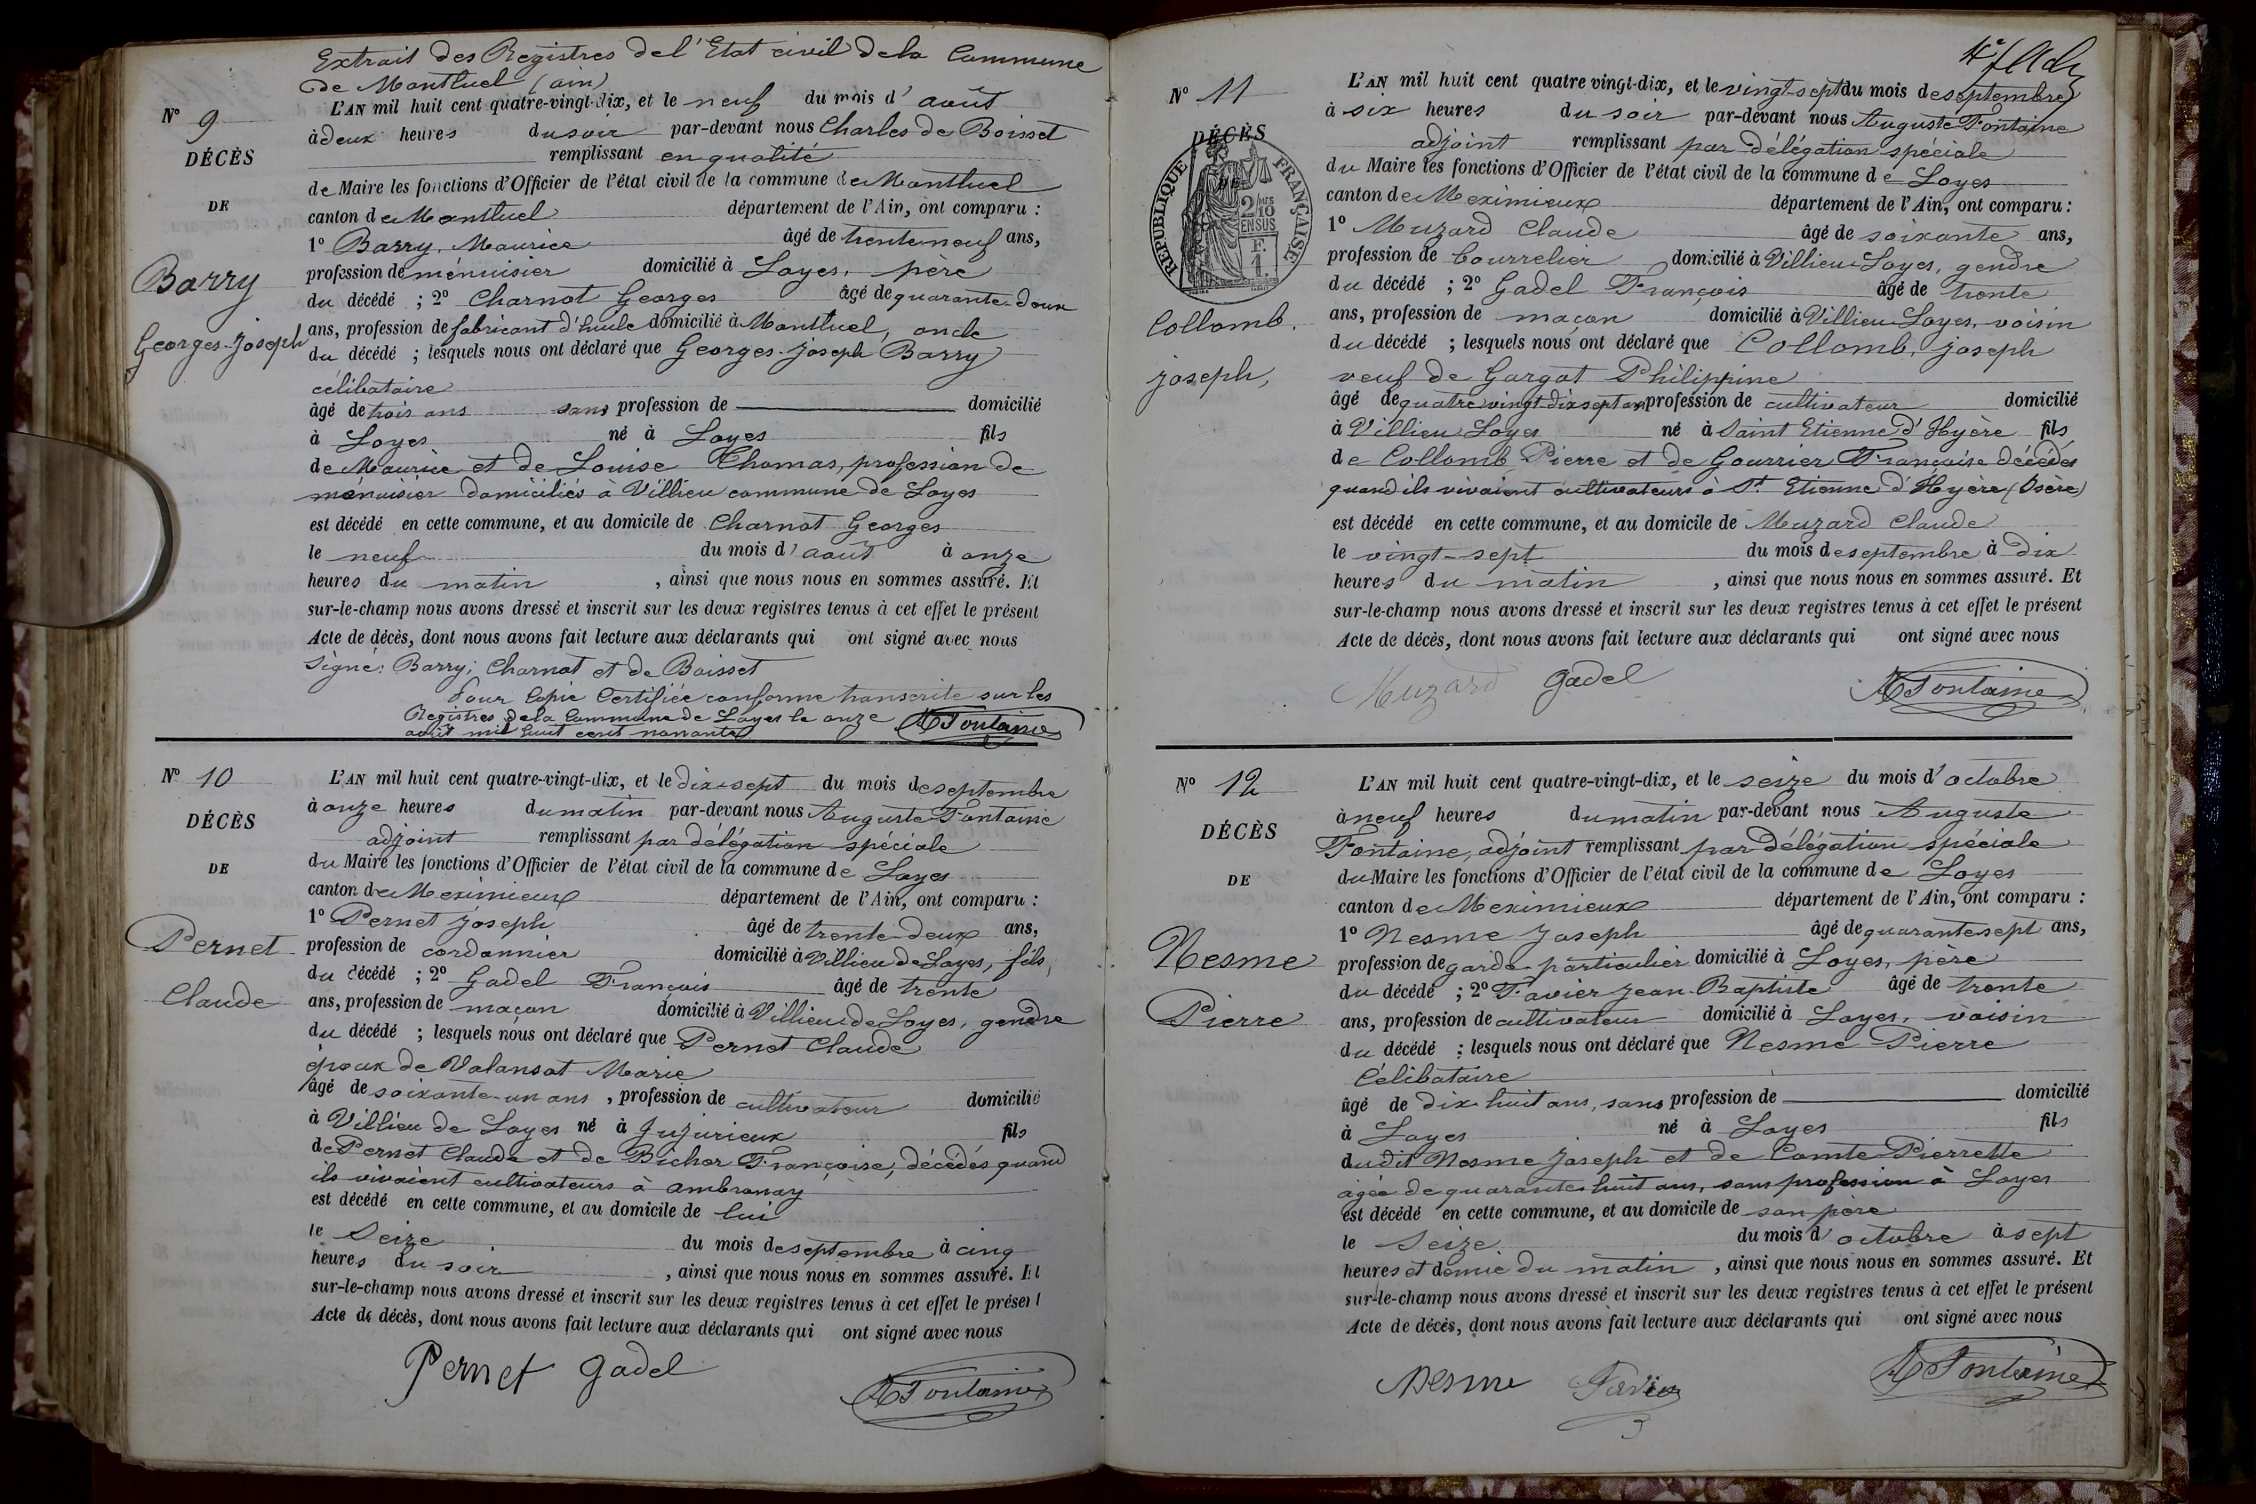 Extrait des Registres de l'Etat civil de la Commune
de Montluel (ain)
N° 9
DÉCÈS
DE
Barry
Georges-Joseph
L'AN mil huit cent quatre-vingt-dix, et le neuf du mois d'août
à deux heures du soir par-devant nous Charles de Boisset
remplissant en qualité
de Maire les fonctions d'Officier de l'état civil de la commune de Montluel
canton de Montluel département de l'Ain, ont comparu :
1° Barry, Maurice âgé de trente neuf ans,
profession de ménuisier domicilié à Loyes, père
du décédé ; 2° Charnot Georges âgé de quarante-deux
ans, profession de fabricant d'huile domicilié à Montluel, oncle
du décédé ; lesquels nous ont déclaré que Georges-Joseph Barry
célibataire
âgé de trois ans sans profession de domicilié
à Loyes né à Loyes fils
de Maurice et de Louise Thomas, profession de
ménuisier domiciliés à Villieu commune de Loyes
est décédé en cette commune, et au domicile de Charnot Georges
le neuf du mois d'août à onze
heures du matin , ainsi que nous nous en sommes assuré. Et
sur-le-champ nous avons dressé et inscrit sur les deux registres tenus à cet effet le présent
Acte de décès, dont nous avons fait lecture aux déclarants qui ont signé avec nous
Signé: Barry; Charnot et de Boisset
Pour Copie Certifiée conforme transcrite sur les
Registres de la Commune de Loyes le onze
août mil huit cent nonante
A Fontaine
N° 10
DÉCÈS
DE
Pernet
Claude
L'AN mil huit cent quatre-vingt-dix, et le dix-sept du mois de septembre
à onze heures du matin par-devant nous Auguste Fontaine
adjoint remplissant par délégation spéciale
du Maire les fonctions d'Officier de l'état civil de la commune de Loyes
canton de Meximieux département de l'Ain, ont comparu :
1° Pernet Joseph âgé de trente-deux ans,
profession de cordonnier domicilié à Villieu de Loyes, fils,
du décédé ; 2° Gadel François âgé de trente
ans, profession de maçon domicilié à Villieu de Loyes, gendre
du décédé ; lesquels nous ont déclaré que Pernet Claude
époux de Valansot Marie
âgé de soixante-un ans , profession de cultivateur domicilié
à Villieu de Loyes né à Jujurieux fils
de Pernet Claude et de Bichor Françoise, décédés quand
ils vivaient cultivateurs à Ambronay
est décédé en cette commune, et au domicile de lui
le Seize du mois de septembre à cinq
heures du soir , ainsi que nous nous en sommes assuré. Et
sur-le-champ nous avons dressé et inscrit sur les deux registres tenus à cet effet le présent
Acte de décès, dont nous avons fait lecture aux déclarants qui ont signé avec nous
Pernet Gadel A Fontaine
N° 11
DÉCÈS
DE
RÉPUBLIQUE FRANÇAISE
2/10
EN SUS
F.
1.
Collomb.
Joseph,
L'AN mil huit cent quatre vingt-dix, et le vingt-sept du mois de septembre
à six heures du soir par-devant nous Auguste Fontaine
adjoint remplissant par délégation spéciale
du Maire les fonctions d'Officier de l'état civil de la commune de Loyes
canton de Meximieux département de l'Ain, ont comparu :
1° Muzard Claude âgé de soixante ans,
profession de bourrelier domicilié à Villieu-Loyes, gendre
du décédé ; 2° Gadel François âgé de trente
ans, profession de maçon domicilié à Villieu-Loyes, voisin
du décédé ; lesquels nous ont déclaré que Collomb, Joseph
veuf de Gargat Philippine
âgé de quatre vingt dix sept ans profession de cultivateur domicilié
à Villieu Loyes né à Saint Etienne d'Hyère fils
de Collomb Pierre et de Gourrier Françoise décédés
quand ils vivaient cultivateurs à St Etienne d'Hyère (Isère)
est décédé en cette commune, et au domicile de Muzard Claude
le vingt-sept du mois de septembre à dix
heures du matin , ainsi que nous nous en sommes assuré. Et
sur-le-champ nous avons dressé et inscrit sur les deux registres tenus à cet effet le présent
Acte de décès, dont nous avons fait lecture aux déclarants qui ont signé avec nous
Muzard Gadel A Fontaine
N° 12
DÉCÈS
DE
Nesme
Pierre
L'AN mil huit cent quatre-vingt-dix, et le seize du mois d'octobre
à neuf heures du matin par-devant nous Auguste
Fontaine, adjoint remplissant par délégation spéciale
du Maire les fonctions d'Officier de l'état civil de la commune de Loyes
canton de Meximieux département de l'Ain, ont comparu :
1° Nesme Joseph âgé de quarante sept ans,
profession de garde particulier domicilié à Loyes, père
du décédé ; 2° Favier Jean-Baptiste âgé de trente
ans, profession de cultivateur domicilié à Loyes, voisin
du décédé ; lesquels nous ont déclaré que Nesme Pierre
Célibataire
âgé de dix-huit ans, sans profession de domicilié
à Loyes né à Loyes fils
dudit Nesme Joseph et de Comte Pierrette
agée de quarante huit ans, sans profession à Loyes
est décédé en cette commune, et au domicile de son père
le Seize du mois d'octobre à sept
heures et demie du matin , ainsi que nous nous en sommes assuré. Et
sur-le-champ nous avons dressé et inscrit sur les deux registres tenus à cet effet le présent
Acte de décès, dont nous avons fait lecture aux déclarants qui ont signé avec nous
Nesme Favier A Fontaine